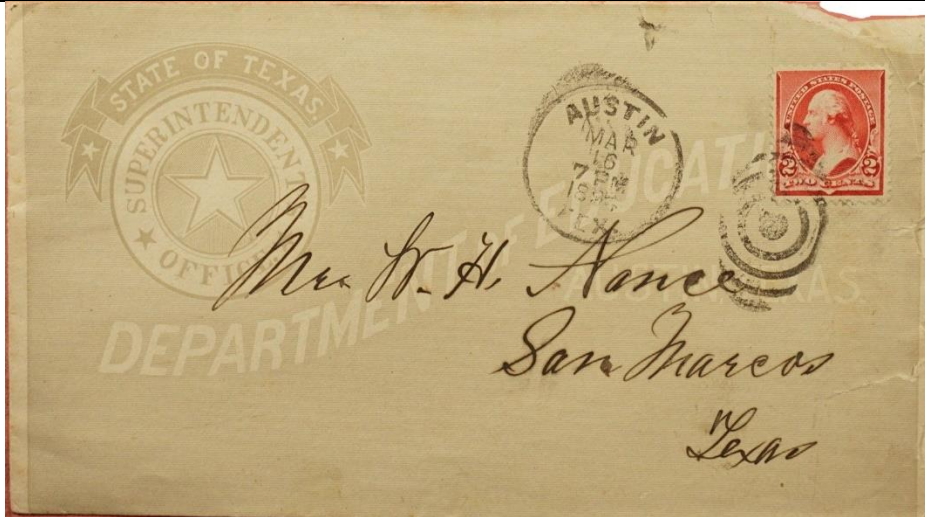 STATE OF TEXAS
SUPERINTENDENT
OFFICE
DEPARTMENT OF EDUCATION
AUSTIN, TEXAS.
AUSTIN
MAR
16
7 PM
TEX.
UNITED STATES POSTAGE
2 2
TWO CENTS
W. H. Nance
San Marcos
Texas